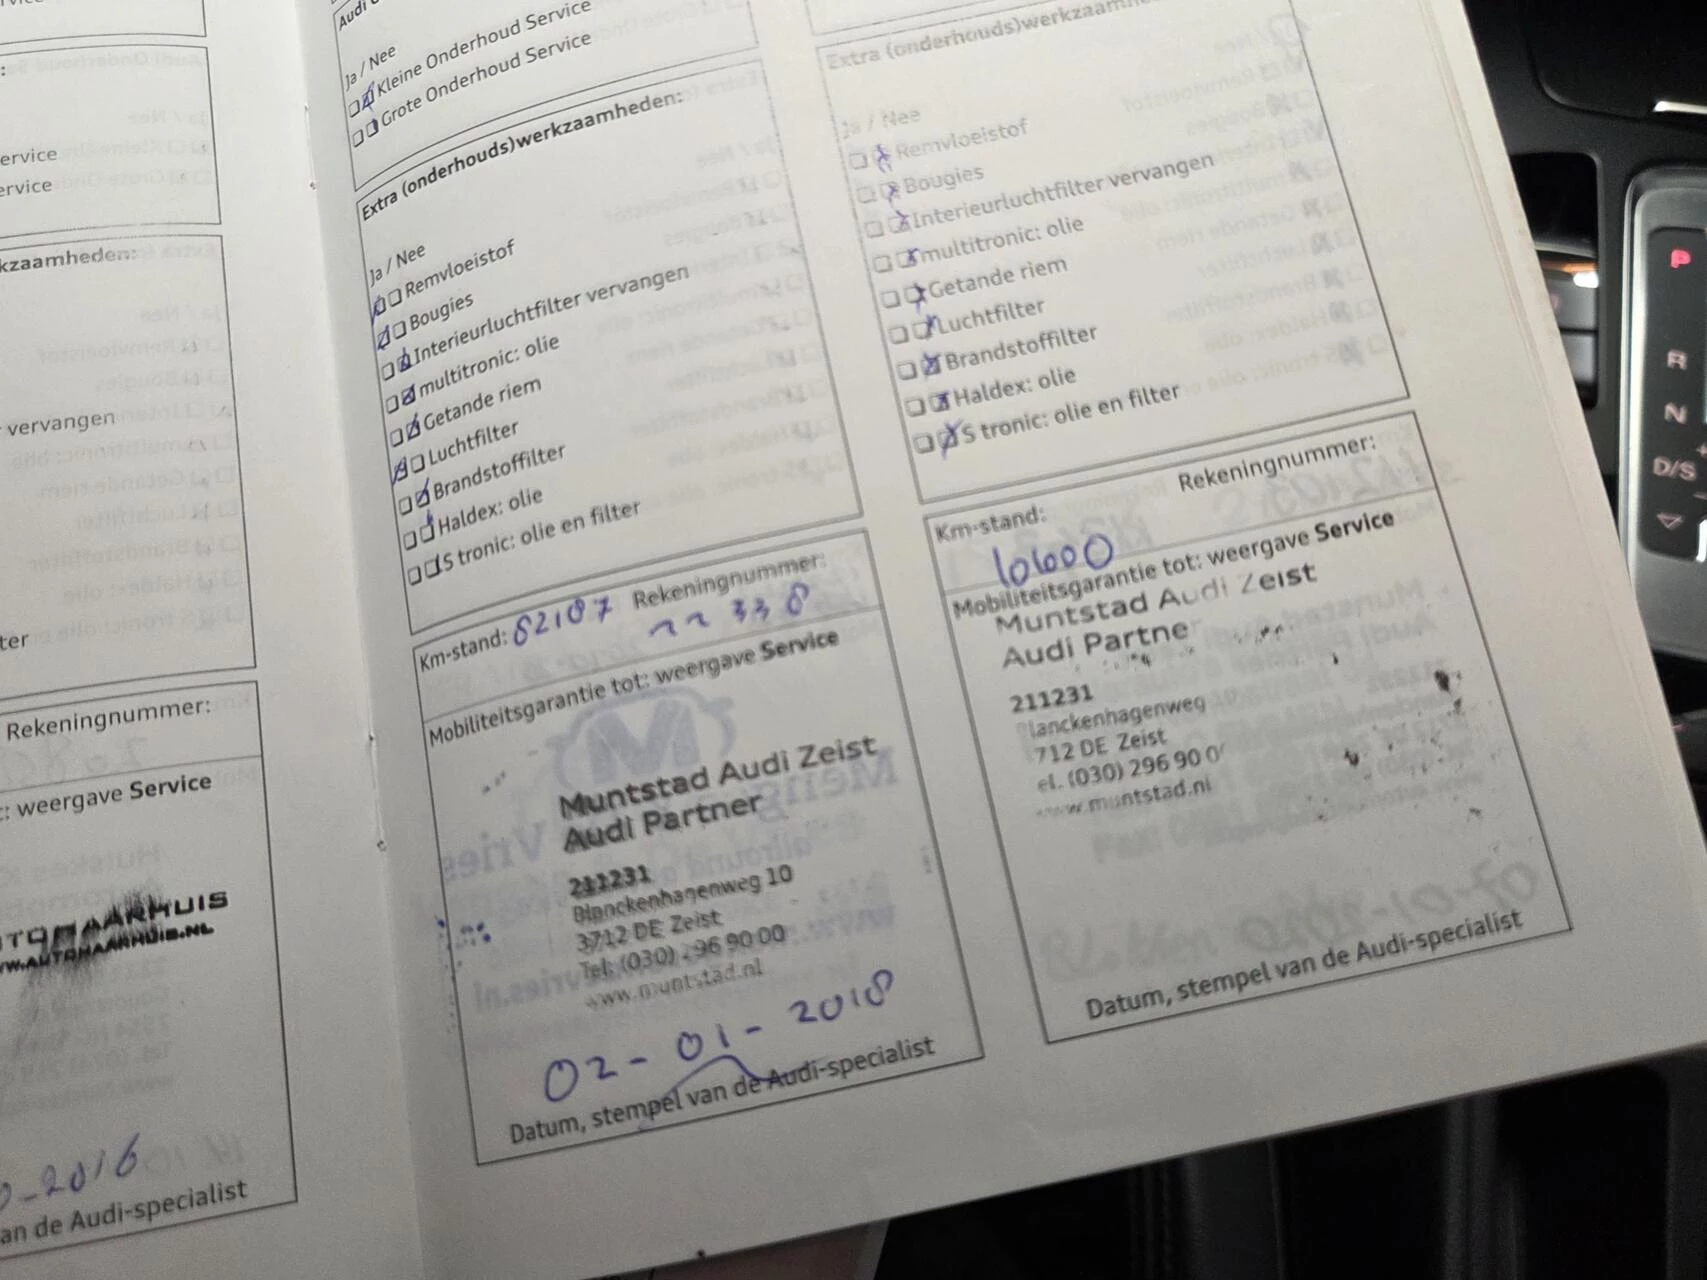 ervice
ervice
kzaamheden:
vervangen
ter
Rekeningnummer:
weergave Service
WWW.AUTOMAARHUIS.NL
-2016
an de Audi-specialist
Audi
Ja / Nee
Kleine Onderhoud Service
Grote Onderhoud Service
Extra (onderhouds)werkzaamheden:
Ja / Nee
Remvloeistof
Bougies
Interieurluchtfilter vervangen
multitronic: olie
Getande riem
Luchtfilter
Brandstoffilter
Haldex: olie
S tronic: olie en filter
Km-stand: 82187 Rekeningnummer:
22338
Mobiliteitsgarantie tot: weergave Service
Muntstad Audi Zeist
Audi Partner
211231
Blanckenhagenweg 10
3712 DE Zeist
Tel: (030) 296 90 00
www.muntstad.nl
02-01-2018
Datum, stempel van de Audi-specialist
Extra (onderhouds)werkzaamhe
Ja / Nee
Remvloeistof
Bougies
Interieurluchtfilter vervangen
multitronic: olie
Getande riem
Luchtfilter
Brandstoffilter
Haldex: olie
S tronic: olie en filter
Rekeningnummer:
Km-stand:
Mobiliteitsgarantie tot: weergave Service
Muntstad Audi Zeist
Audi Partner
211231
lanckenhagenweg
712 DE Zeist
el. (030) 296 90 0
www.muntstad.nl
Datum, stempel van de Audi-specialist
P
R
N
D/S